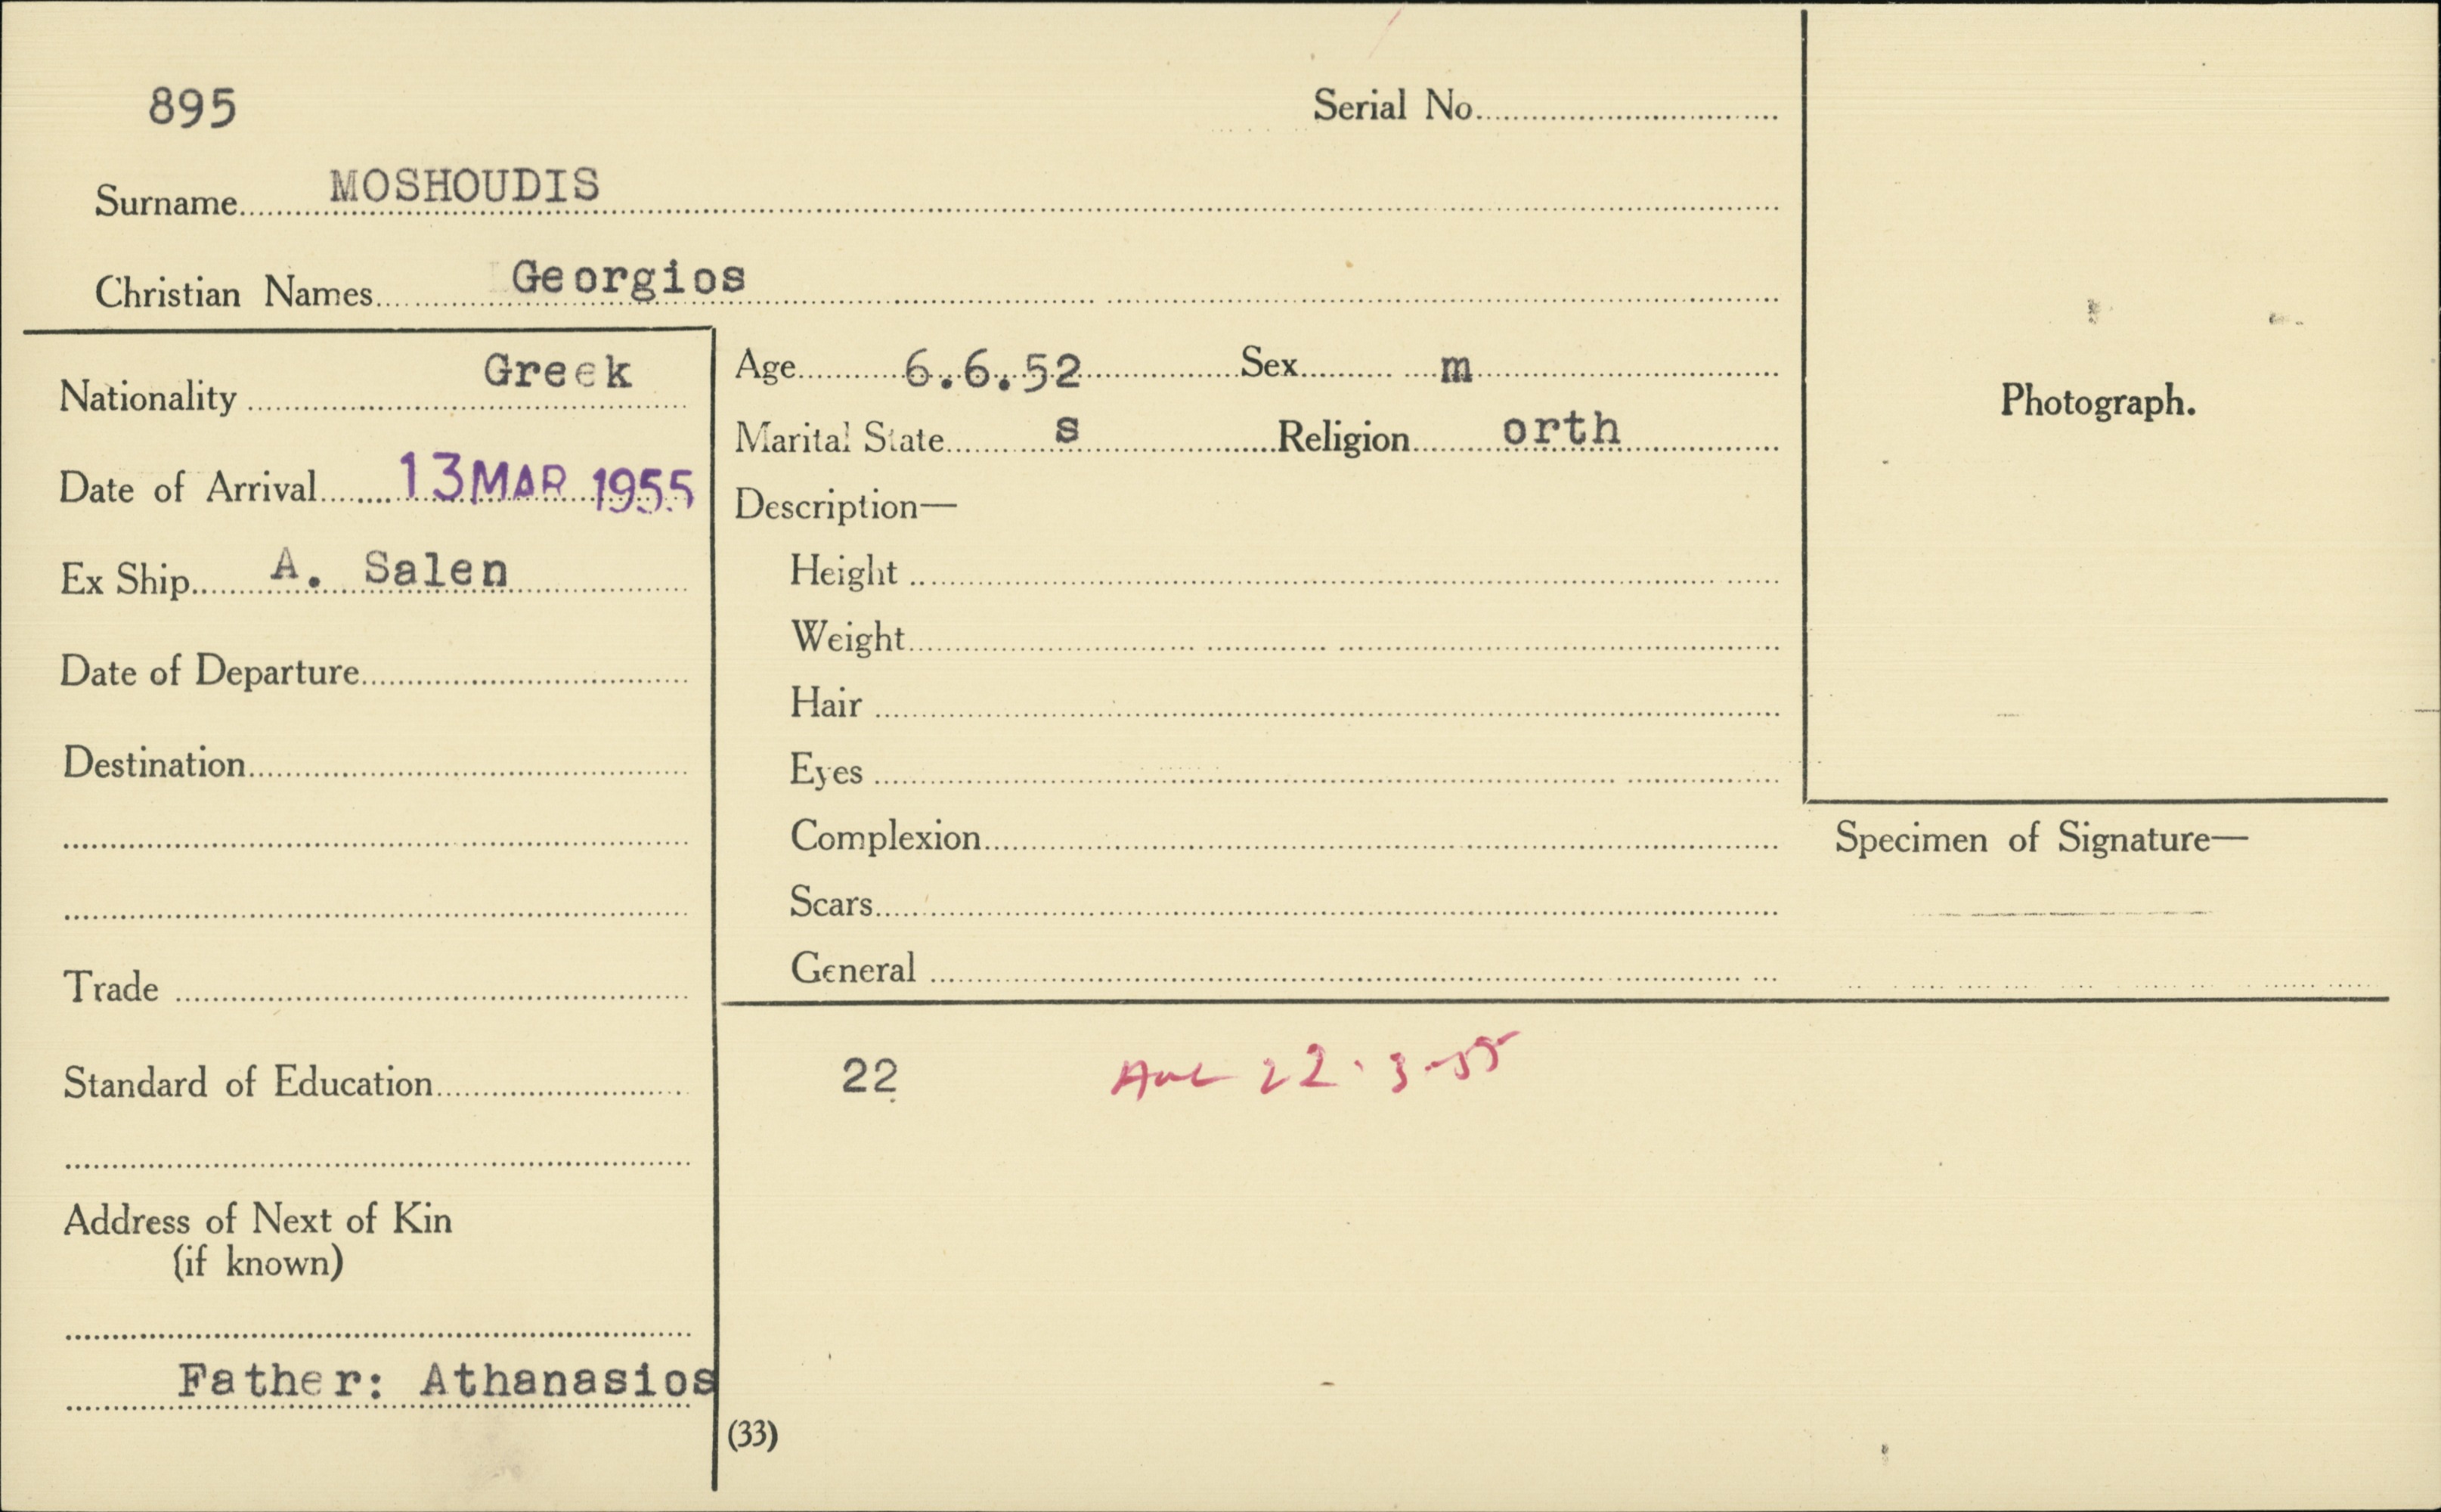 895
Serial No.
Surname MOSHOUDIS
Christian Names Georgios
Nationality Greek
Date of Arrival 13 MAR 1955
Ex Ship A. Salen
Date of Departure
Destination
Trade
Standard of Education
Address of Next of Kin
(if known)
Father: Athanasios
Age 6.6.52 Sex m
Marital State s Religion orth
Description—
Height
Weight
Hair
Eyes
Complexion
Scars
General
Photograph.
Specimen of Signature—
22
22.3.55
(33)